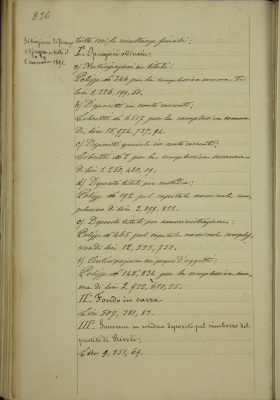 836
Situazione di Finanza
2 novembre 1891.
tutto così le risultanze finali:
I° Operazioni ordinarie:
a) Anticipazioni su titoli:
Polizze N° 266 per la complessiva somma di
lire 1,226,199,50.
b) Depositi in conto corrente:
Libretti N° 6517 per la complessiva somma
di lire 15,974,737,94.
c) Depositi speciali in conto corrente:
Libretti N° 2 per la complessiva somma
di lire 1,250,480,19.
d) Deposito titoli per custodia:
Polizze N° 192 pel capitale nominale com-
plessivo di lire 2,899,822.
e) Deposito titoli per amministrazione:
Polizze N° 465 pel capitale nominale comples-
sivo di lire 12,525,730.
f) Anticipazione su pegno d'oggetti:
Polizze N° 145,836 per la complessiva som-
ma di lire 2,932,620,25.
II° Fondo in cassa
Lire 507,281,83.
III° Somma in conto deposito pel rimborso del
prestito di
Lire 9,351,69.